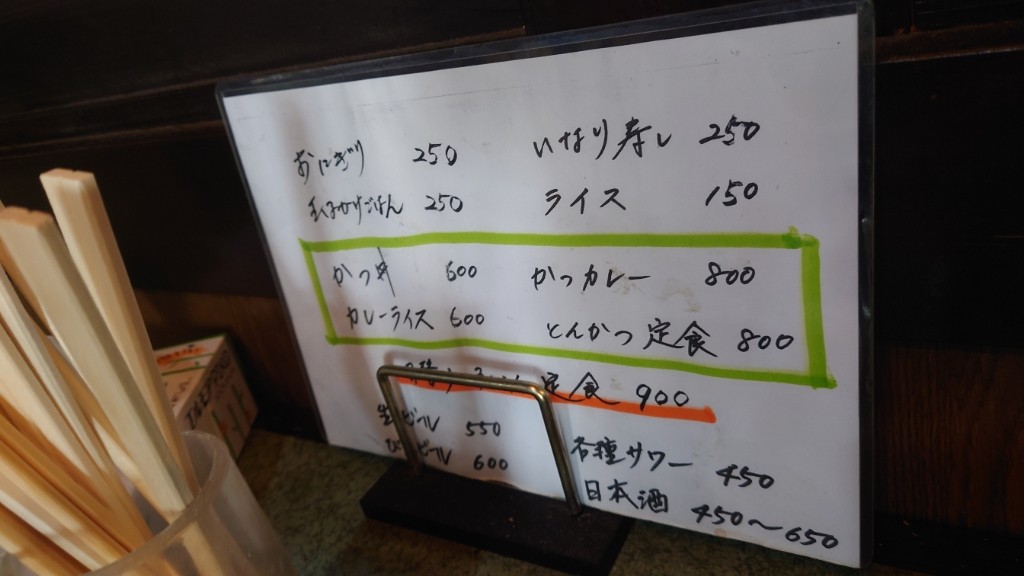 おにぎり 250 いなり寿し 250
玉子かけごはん 250 ライス 150
かつ丼 600 かつカレー 800
カレーライス 600 とんかつ定食 800
定食 900
生ビール 550 各種サワー 450
びんビール 600 日本酒 450〜650